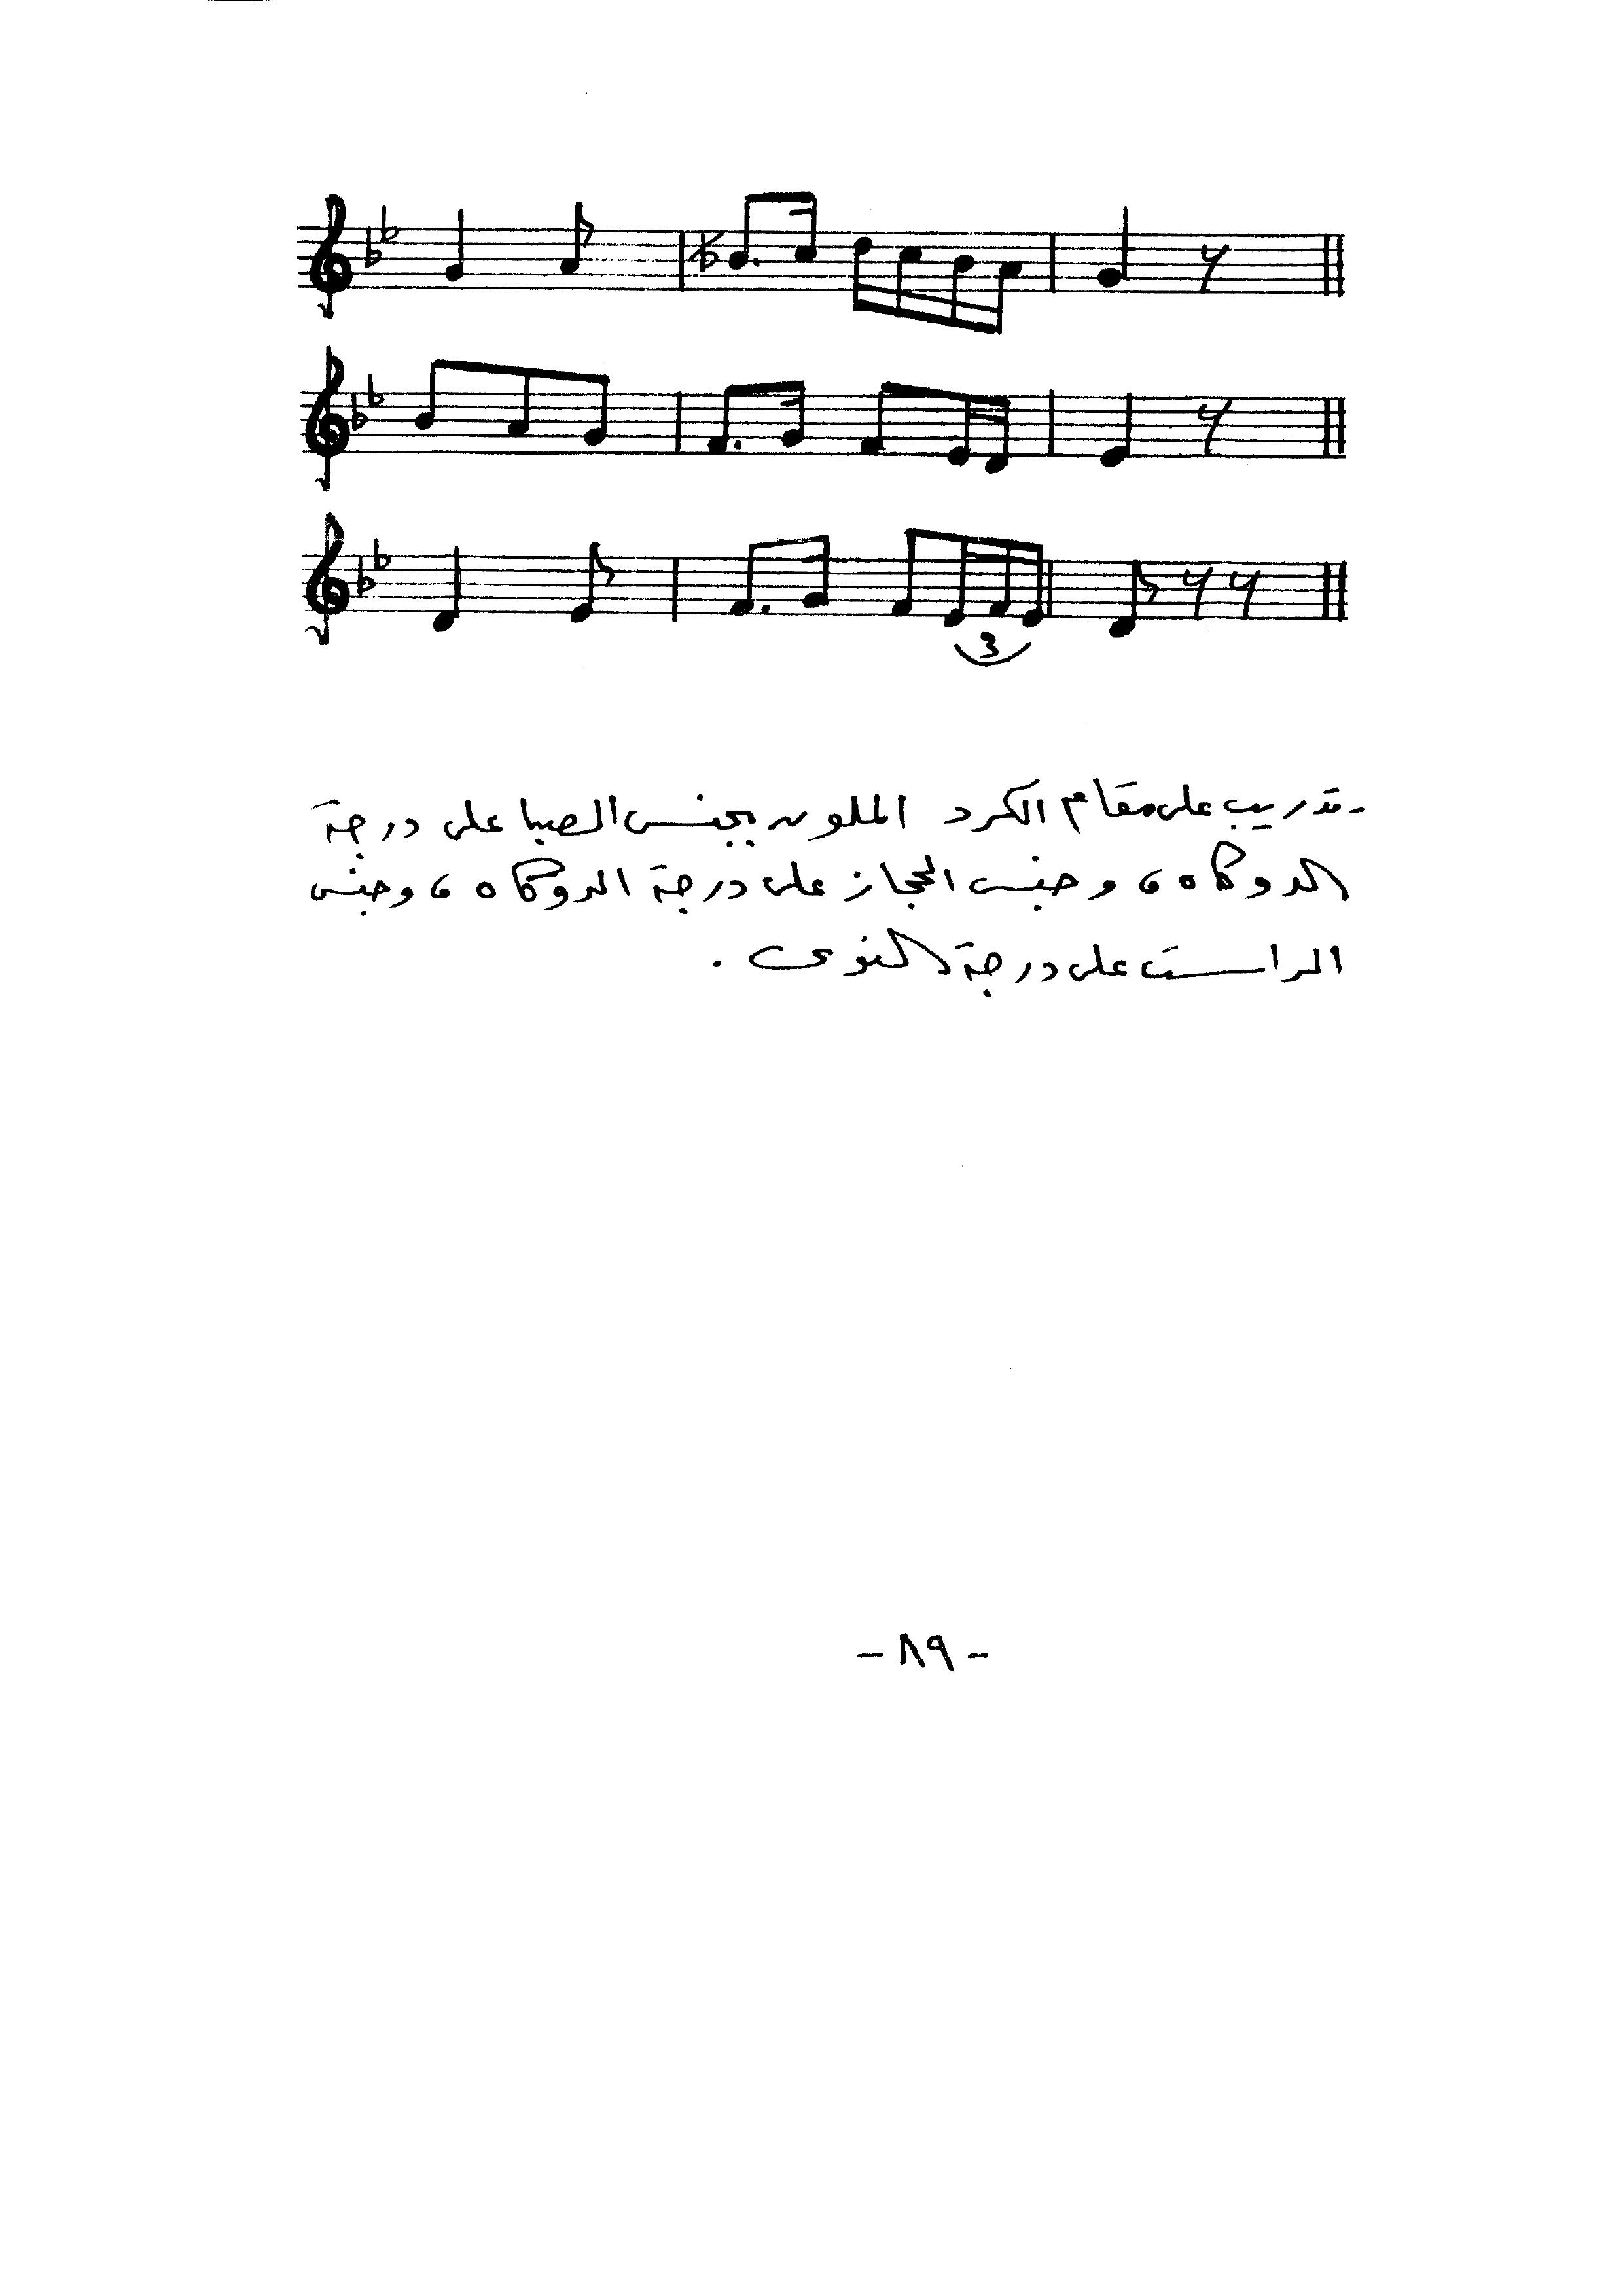 3
- تدريب على مقام الكرد الملون بجنس الصبا على درجة
الدوكاه ، وجنس الحجاز على درجة الدوكاه ، وجنس
الراست على درجة النوى .
- ٨٩ -